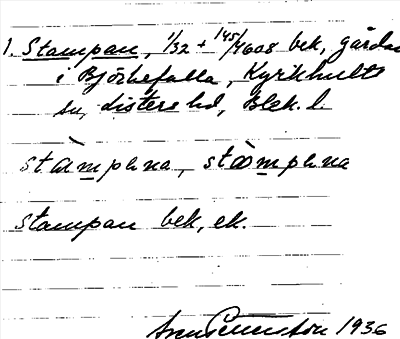 1. Stampan, 1/32 + 145/4608 bek, gårdar
i Björkefalla, Kyrkhults
sn, Listers hd, Blek. l.
stampna, stampna
stampan bek, ek.
Sven 1936